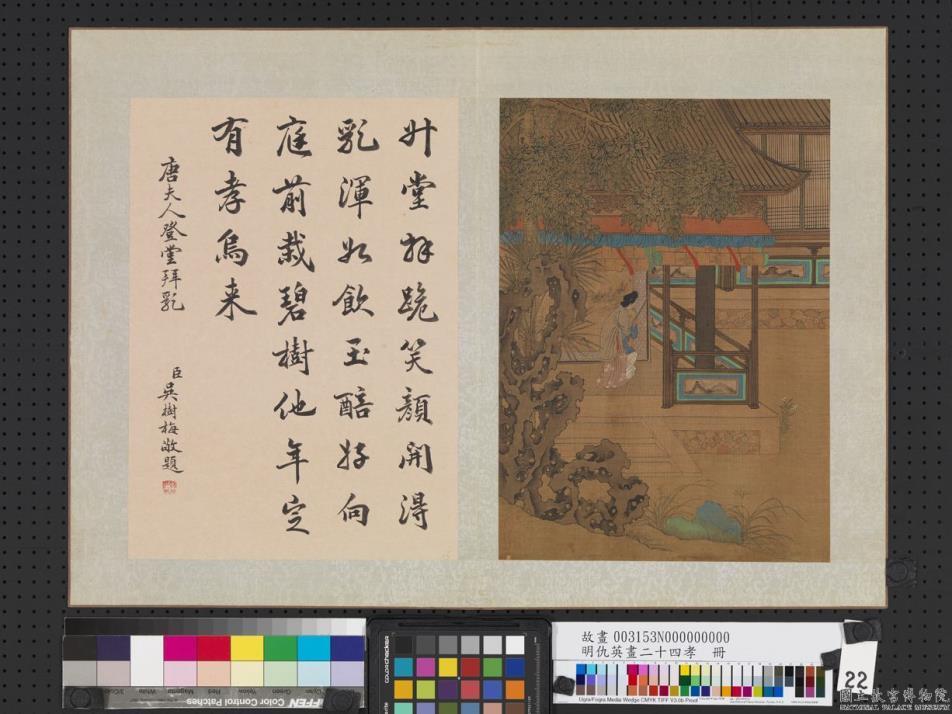 升堂拜跪笑顔開得
乳渾如飲玉醅好向
庭前栽碧樹他年定
有孝烏来
唐夫人登堂拜乳
臣吳樹梅敬題
colorchecker
TIFFEN Color Control Patches
故畫 003153N000000000
明仇英畫二十四孝 冊
Ugra/Fogra Media Wedge CMYK TIFF V3.0b Proof
22
國立故宮博物院
NATIONAL PALACE MUSEUM